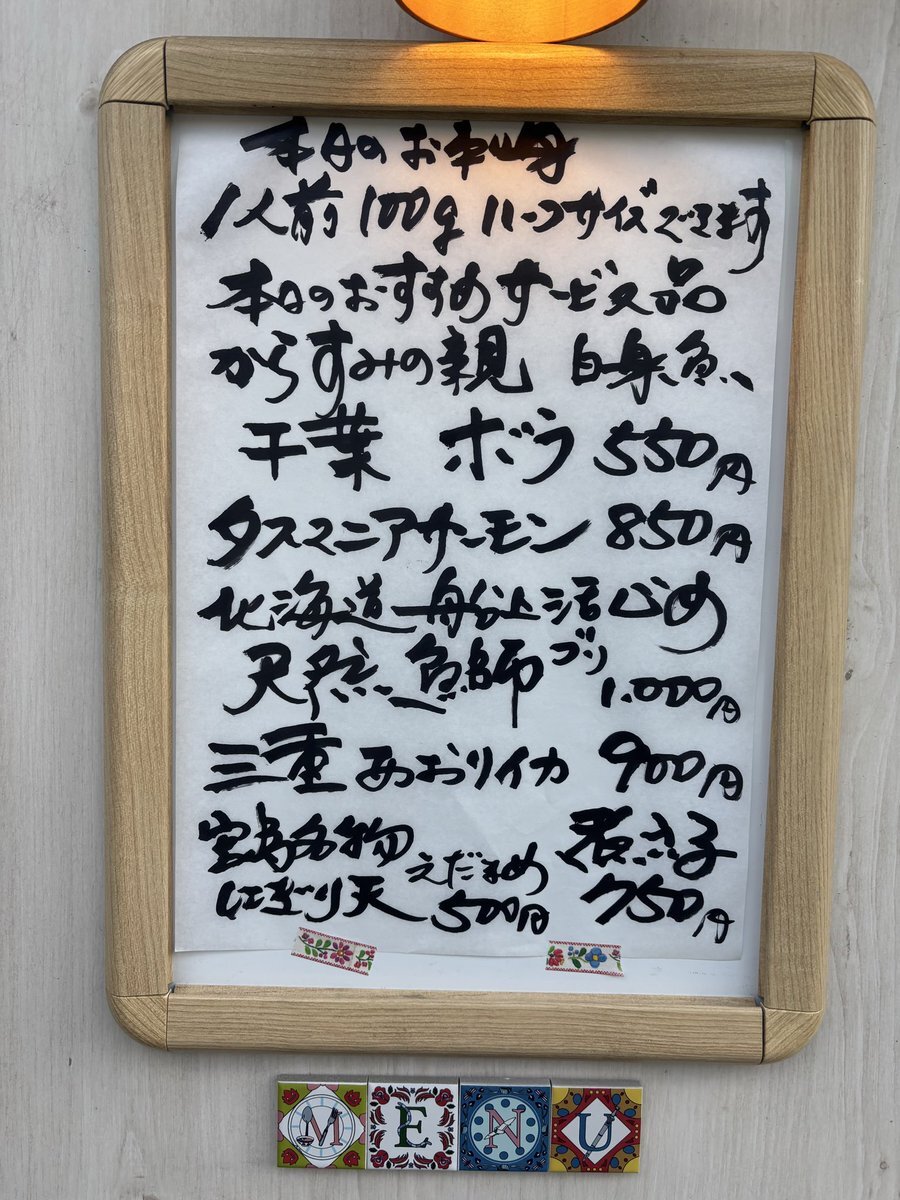 本日のお
1人前 100g ハーフサイズできます
本日のおすすめサービス品
からすみの親 白身魚
千葉 ボラ 550円
タスマニアサーモン 850円
北海道 船上活じめ
天然 鰤 ブリ 1.000円
三重 あおりイカ 900円
宮島名物
にぎり天 えだまめ 500円 750円
MENU